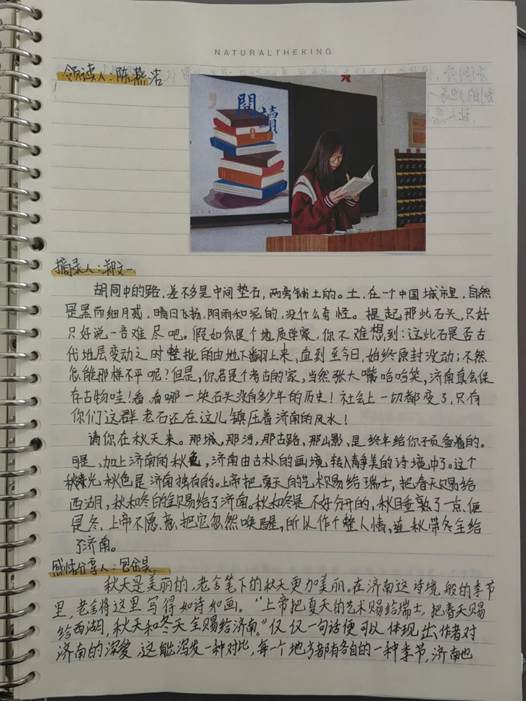 NATURALTHEKING
领读人：陈熙洁
閱讀
摘录人：郑文一
胡同中的路，差不多是中间垫石，两旁铺土的。土，在一个中国城市里，自然
是黑而细月藏，晴日飞扬，阴雨和泥的，没什么奇怪。提起那些石头，只好
只好说一言难尽吧。假如你是个地质学家，你不难想到：这些石是否古
代地层变动之时整批的由地下翻上来，直到至今日，始终原封没动；不然，
怎能那样不平呢？但是，你若是个考古的家，当然张大嘴哈哈笑，济南真会保
存古物哇！看，看哪一块石头没有多少年的历史！社会上一切都变了，只有
你们这群老石还在这儿镇压着济南的风水！
请你在秋天来。那城，那河，那古路，那山影，是终年给你预备着的。
可是，加上济南的秋色，济南由古朴的画境转入静美的诗境中了。这个
秋光秋色是济南独有的。上帝把夏天的艺术赐给瑞士，把春天赐给
西湖，秋和冬的全赐给了济南。秋和冬是不好分开的，秋睡熟了一点便
是冬，上帝不愿意把它忽然唤醒，所以作个整人情，连秋带冬全给
了济南。
感悟分享人：
秋天是美丽的，老舍笔下的秋天更加美丽。在济南这诗境一般的季节
里，老舍将这里写得如诗如画。“上帝把夏天的艺术赐给瑞士，把春天赐
给西湖，秋天和冬天全赐给济南。”仅仅一句话便可以体现出作者对
济南的深爱。这能深发一种对比，每个地方都有各自的一种季节，济南也